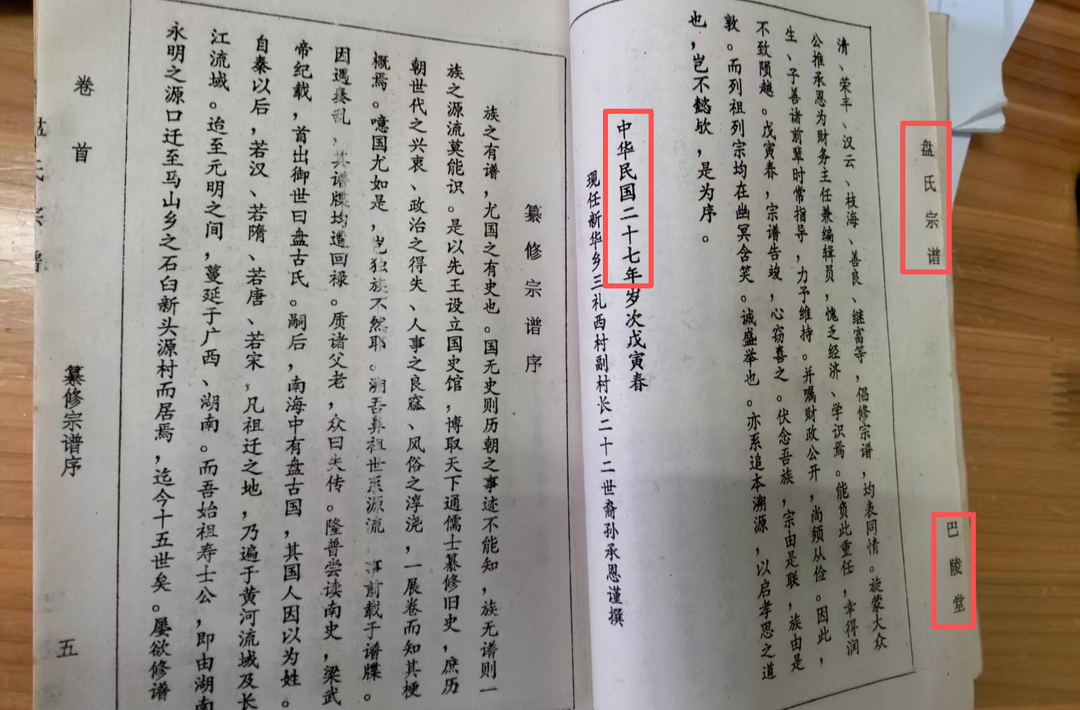 盘氏宗谱
巴陵堂
清、荣丰、汉云、枝海、善良、继富等，倡修宗谱，均表同情。旋蒙大众
公推承恩为财务主任兼编辑员，愧乏经济、学识焉。能负此重任，幸得润
生、子善诸前辈时常指导，力予维持。并嘱财政公开，尚须从俭。因此，
不致陨越。戊寅春，宗谱告竣，心窃喜之。伏念吾族，宗由是联，族由是
敦。而列祖列宗均在幽冥含笑。诚盛举也。亦系追本溯源，以启孝思之道
也，岂不懿欤，是为序。
中华民国二十七年岁次戊寅春
现任新华乡三礼西村副村长二十二世裔孙承恩谨撰
纂修宗谱序
族之有谱，尤国之有史也。国无史则历朝之事迹不能知，族无谱则一
族之源流莫能识。是以先王设立国史馆，博取天下通儒士纂修旧史，庶历
朝世代之兴衷、政治之得失、人事之良窳、风俗之淳浇，一展卷而知其梗
概焉。噫国尤如是，岂独族不然耶。溯吾鼻祖世系源流，事前载于谱牒。
因遇捲乱，其谱牒均遭回禄。质诸父老，众曰失传。隆普尝读南史，梁武
帝纪载，首出御世曰盘古氏。嗣后，南海中有盘古国，其国人因以为姓。
自秦以后，若汉、若隋、若唐、若宋，凡祖迁之地，乃遍于黄河流域及长
江流域。迨至元明之间，蔓延于广西、湖南。而吾始祖寿士公，即由湖南
永明之源口迁至马山乡之石臼新头源村而居焉，迄今十五世矣。屡欲修谱
卷首
氏宗谱
纂修宗谱序
五